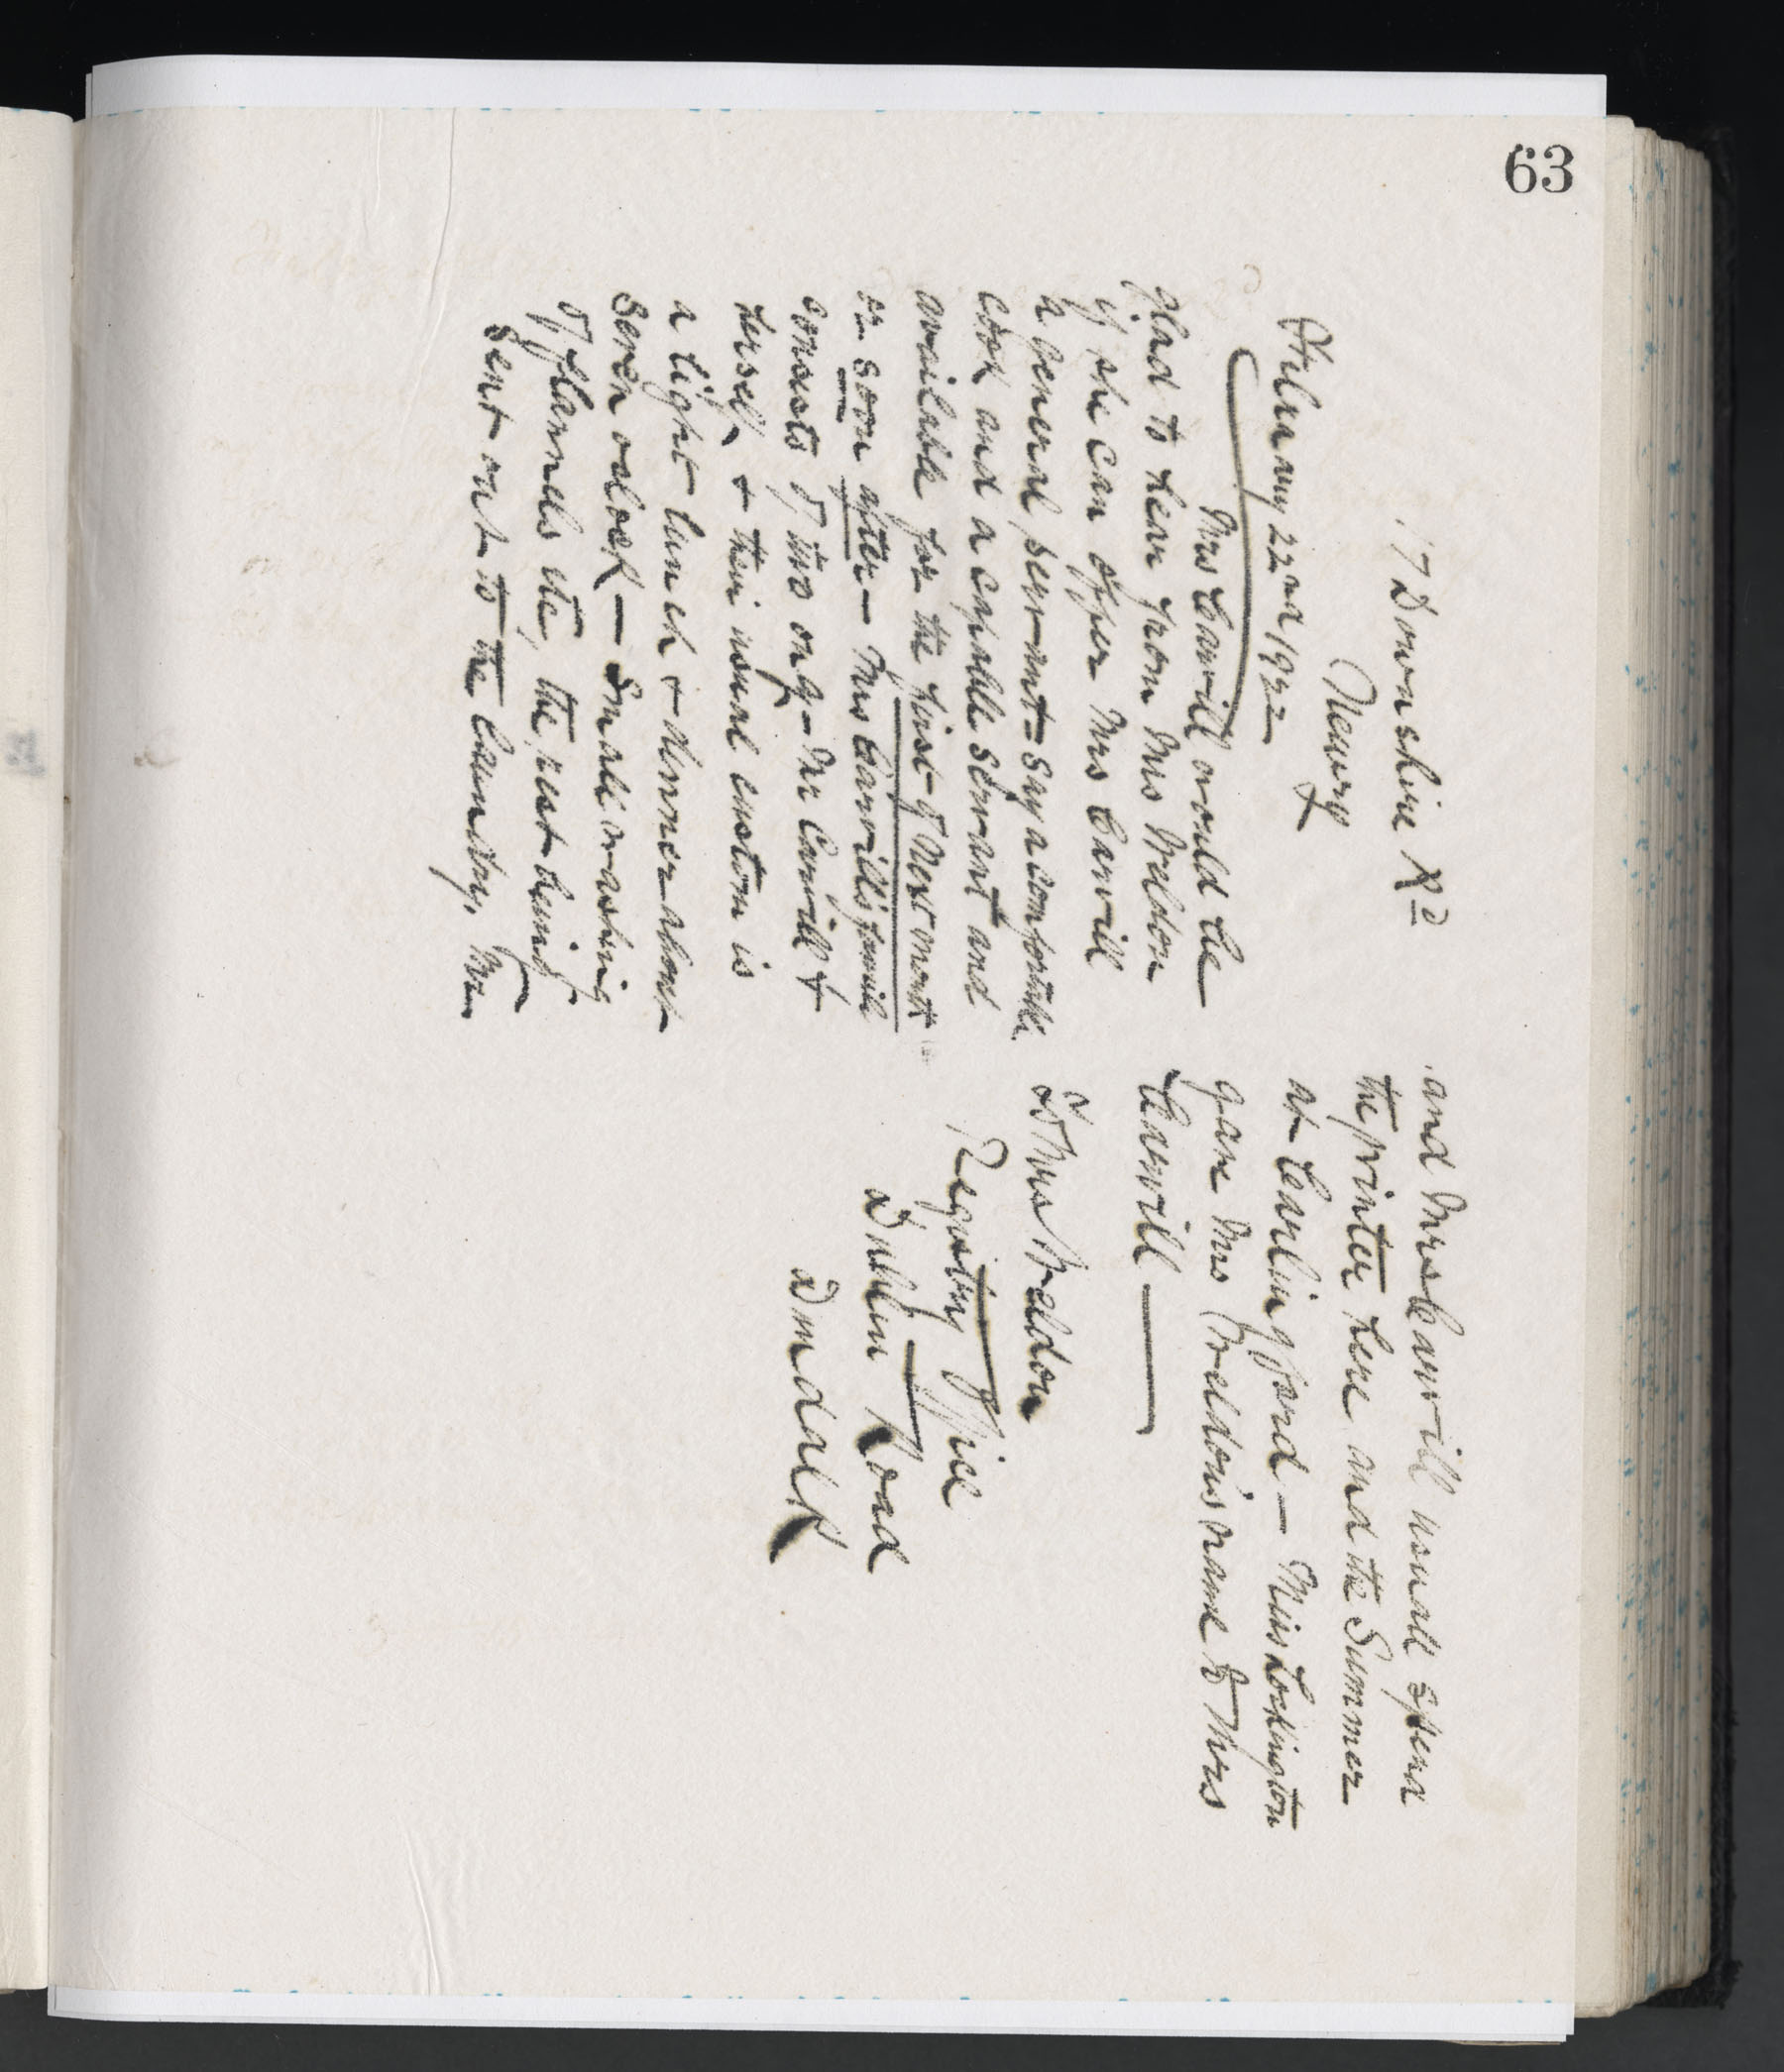 63
17 Downshire Rd
Newry
February 22nd 1922
Mrs Carvill would be
glad to hear from Mrs Weldon
if she can offer Mrs Carvill
a general servant = say a comfortable
cook and a capable servant and
available for the first of next month
or soon after — Mrs Carvill's family
consists of two only - Mr Carvill &
herself + their usual custom is
a light lunch + dinner about
seven oclock — small washing
of flannels etc, the rest being
sent out to the laundry. Mr
and Mrs Carvill usuall spend
the printer here and the Summer
at Carlingford — Miss Lockington
gave Mrs Weldon's name to Mrs
Carvill —
To Mrs Weldon
Registry Office
Dublin Road
Dundalk